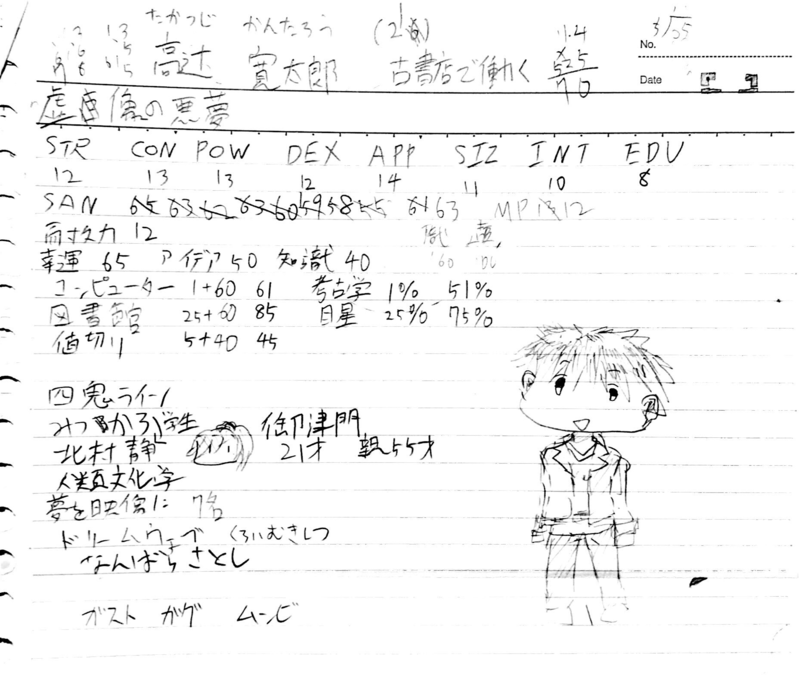 たかつじ かんたろう
高辻 寛太郎 古書店で働く
No. 3/25
Date
虚像の悪夢
STR CON POW DEX APP SIZ INT EDU
12 13 13 12 14 11 10 8
SAN 65 63 62 63 60 59 58 55 61 63 MP 12
耐久力 12
幸運 65 アイデア 50 知識 40
コンピューター 1+60 61 考古学 1% 51%
図書館 25+60 85 目星 25% 75%
値切り 5+40 45
四鬼ライン
みつかど学生 御津門
北村静 21才 親55才
人類文化学
夢を映像に 7名
ドリームウェブ くらいむきしつ
なんばらさとし
ガスト ガグ ムーンビ